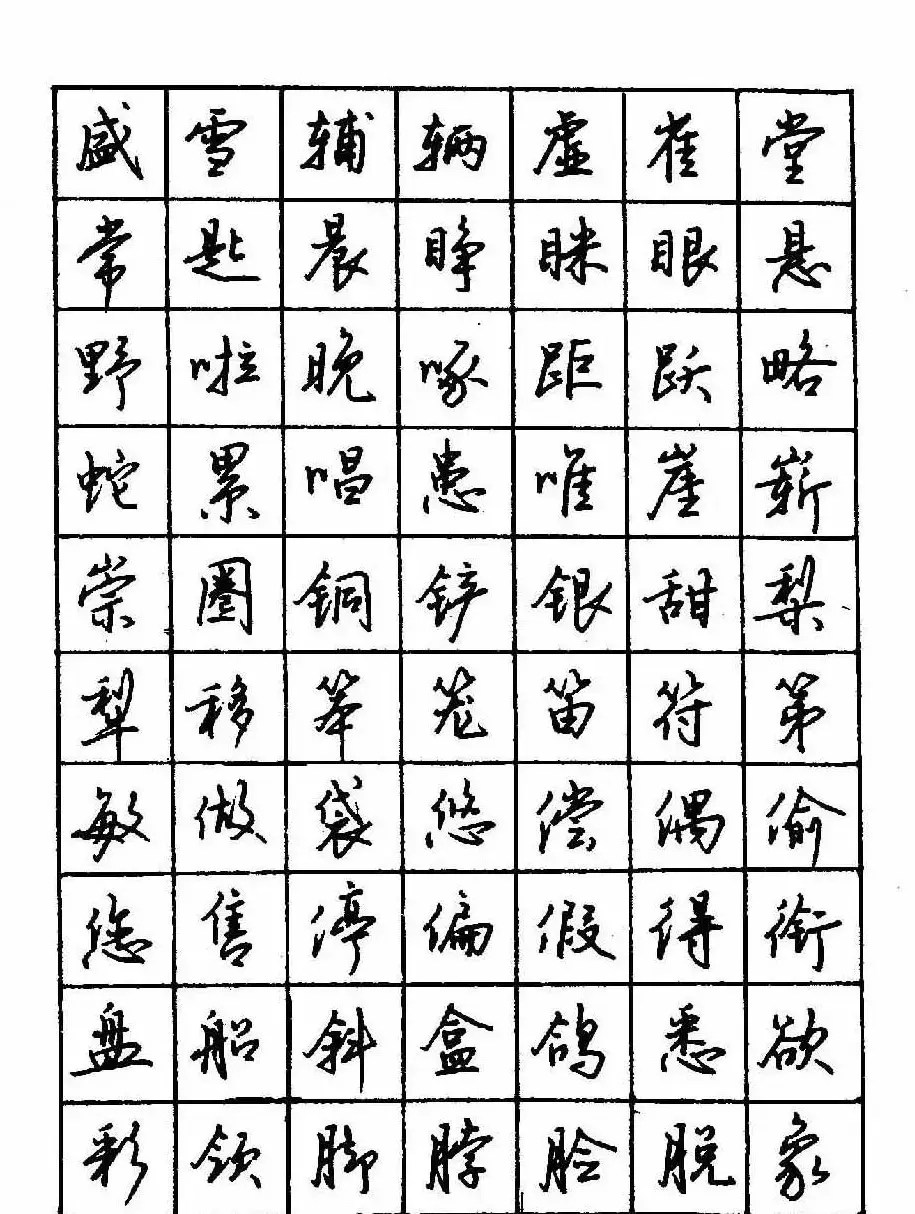 盛雪辅辆虚雀堂
常匙晨睁眯眼悬
野啦晚啄距跃略
蛇累唱患唯崖崭
崇圈铜铲银甜梨
犁移笨笼笛符第
敏做袋悠偿偶偷
您售停偏假得衔
盘船斜盒鸽悉欲
彩领脚脖脸脱象